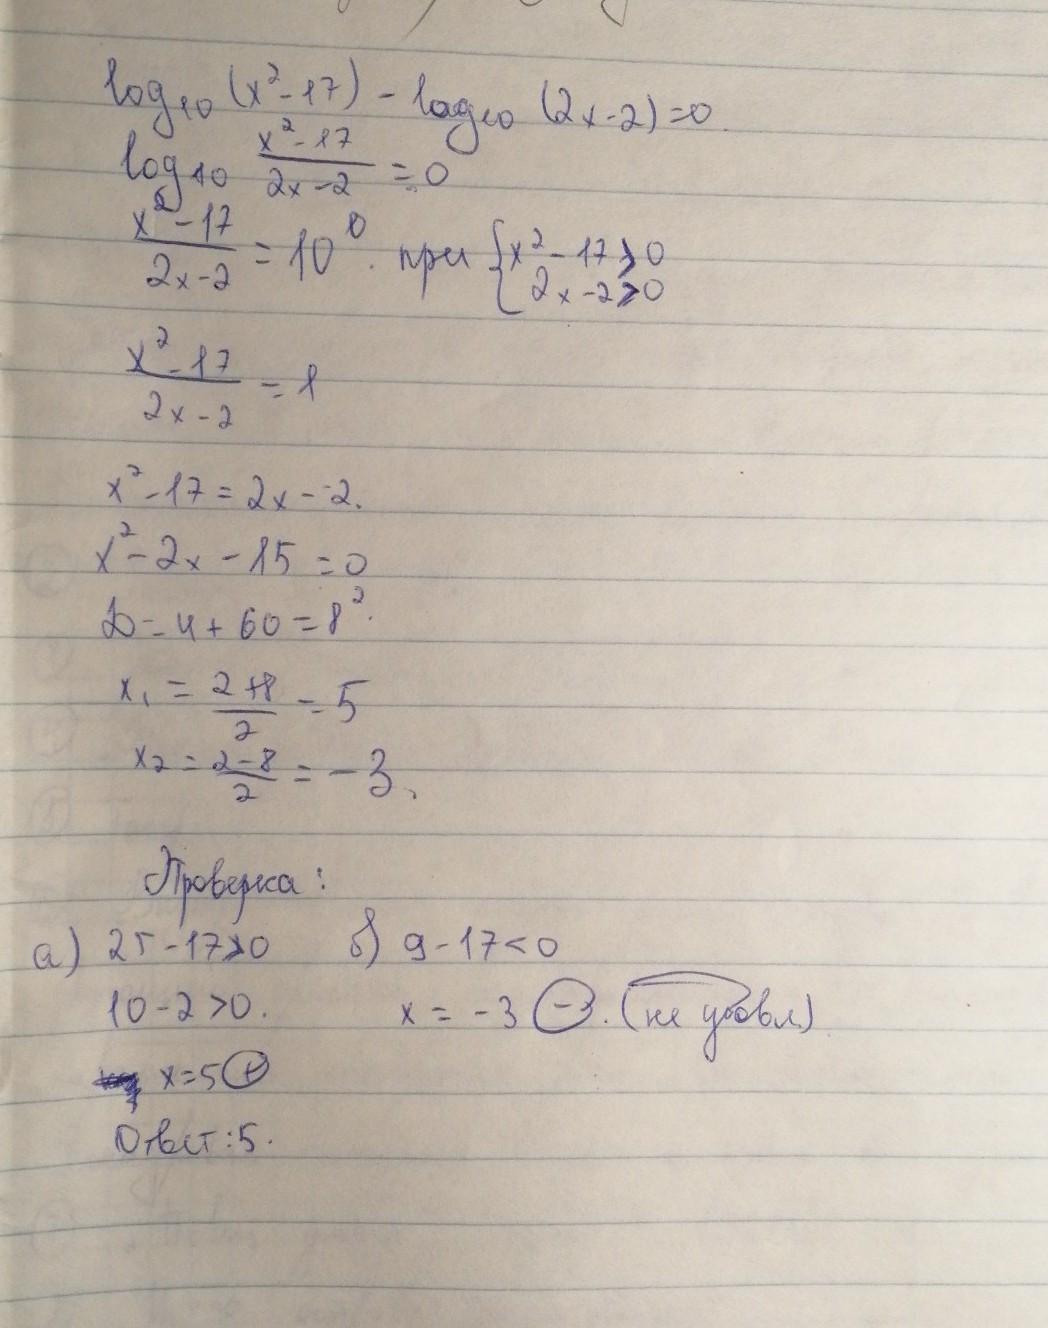 log₁₀ (x²-17) - log₁₀ (2x-2)=0.
log₁₀ (x²-17)/(2x-2) = 0
(x²-17)/(2x-2) = 10⁰. при { x²-17>0
2x-2>0
(x²-17)/(2x-2) = 1
x²-17=2x-2.
x²-2x-15=0
D=4+60=8².
x₁ = (2+8)/2 = 5
x₂ = (2-8)/2 = -3.
Проверка:
а) 25-17>0 б) 9-17<0
10-2>0. x = -3 (-). (не удовл)
x=5 (+)
Ответ: 5.